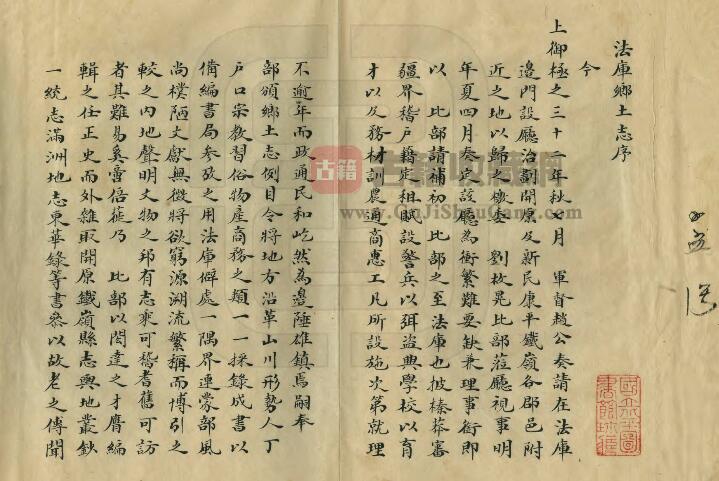 法庫鄉土志序
今
上御極之三十二年秋七月　軍督趙公奏請在法庫
邊門設廳治劃開原及新民康平鐵嶺各郡邑附
近之地以歸之檄委　劉枚晃比部蒞廳視事明
年夏四月奏定該廳為衝繁難要缺兼理事銜即
以　比部請補初　比部之至法庫也披榛莽審
疆界稽戶籍定租賦設警兵以弭盜興學校以育
才以及務材訓農通商惠工凡所設施次第就理
不逾年而政通民和屹然為邊陲雄鎮焉嗣奉
部頒鄉土志例目令將地方沿革山川形勢人丁
戶口宗教習俗物產商務之類一一採錄成書以
備編書局參攷之用法庫僻處一隅界連蒙部風
尚樸陋文獻無徵將欲窮源溯流繁稱而博引之
較之內地聲明文物之邦有志乘可稽耆舊可訪
者其難易奚啻倍蓰乃　比部以閎達之才膺編
輯之任正史而外雜取開原鐵嶺縣志輿地叢鈔
一統志滿洲地志東華錄等書參以故老之傳聞
古籍
www.GuJiShouCang.com